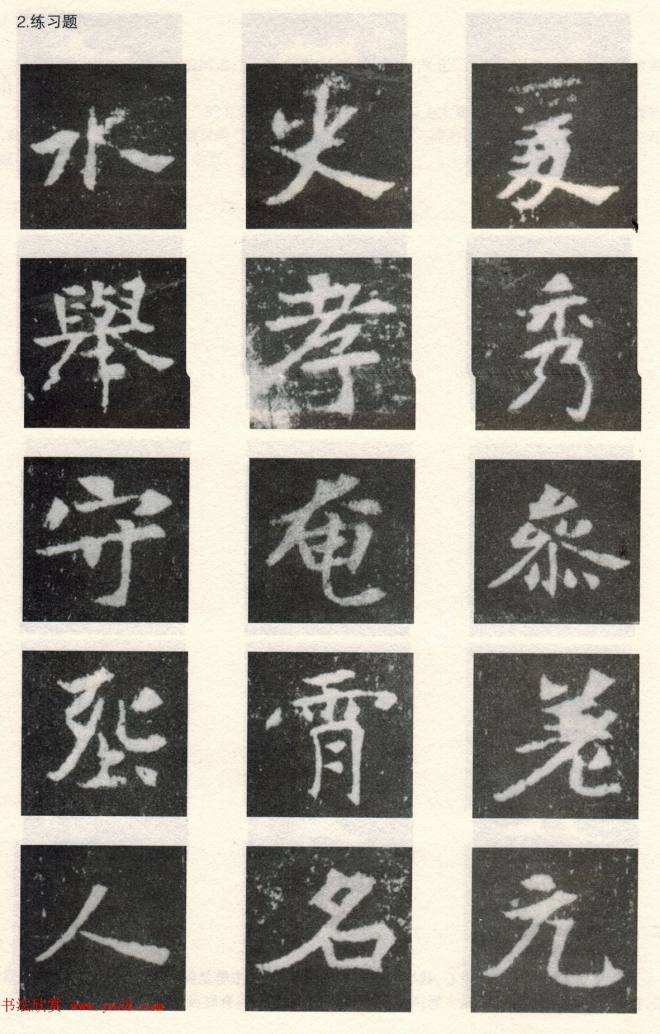 2.练习题
水 火 夏
舉 孝 秀
守 奄 叅
霄 羌
人 名 元
书法欣赏 www.yac8.com